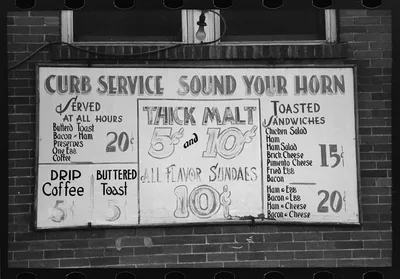 CURB SERVICE SOUND YOUR HORN
SERVED
AT ALL HOURS
Butterd Toast
Bacon or Ham
Preserves
One Egg
Coffee
20¢
DRIP
Coffee
5¢
BUTTERED
Toast
5¢
THICK MALT
5¢ and 10¢
ALL FLAVOR SUNDAES
10¢
TOASTED
SANDWICHES
Chicken Salad
Ham
Ham Salad
Brick Cheese
Pimento Cheese
Fried Egg
Bacon
15¢
Ham & Egg
Bacon & Egg
Ham & Cheese
Bacon & Cheese
20¢